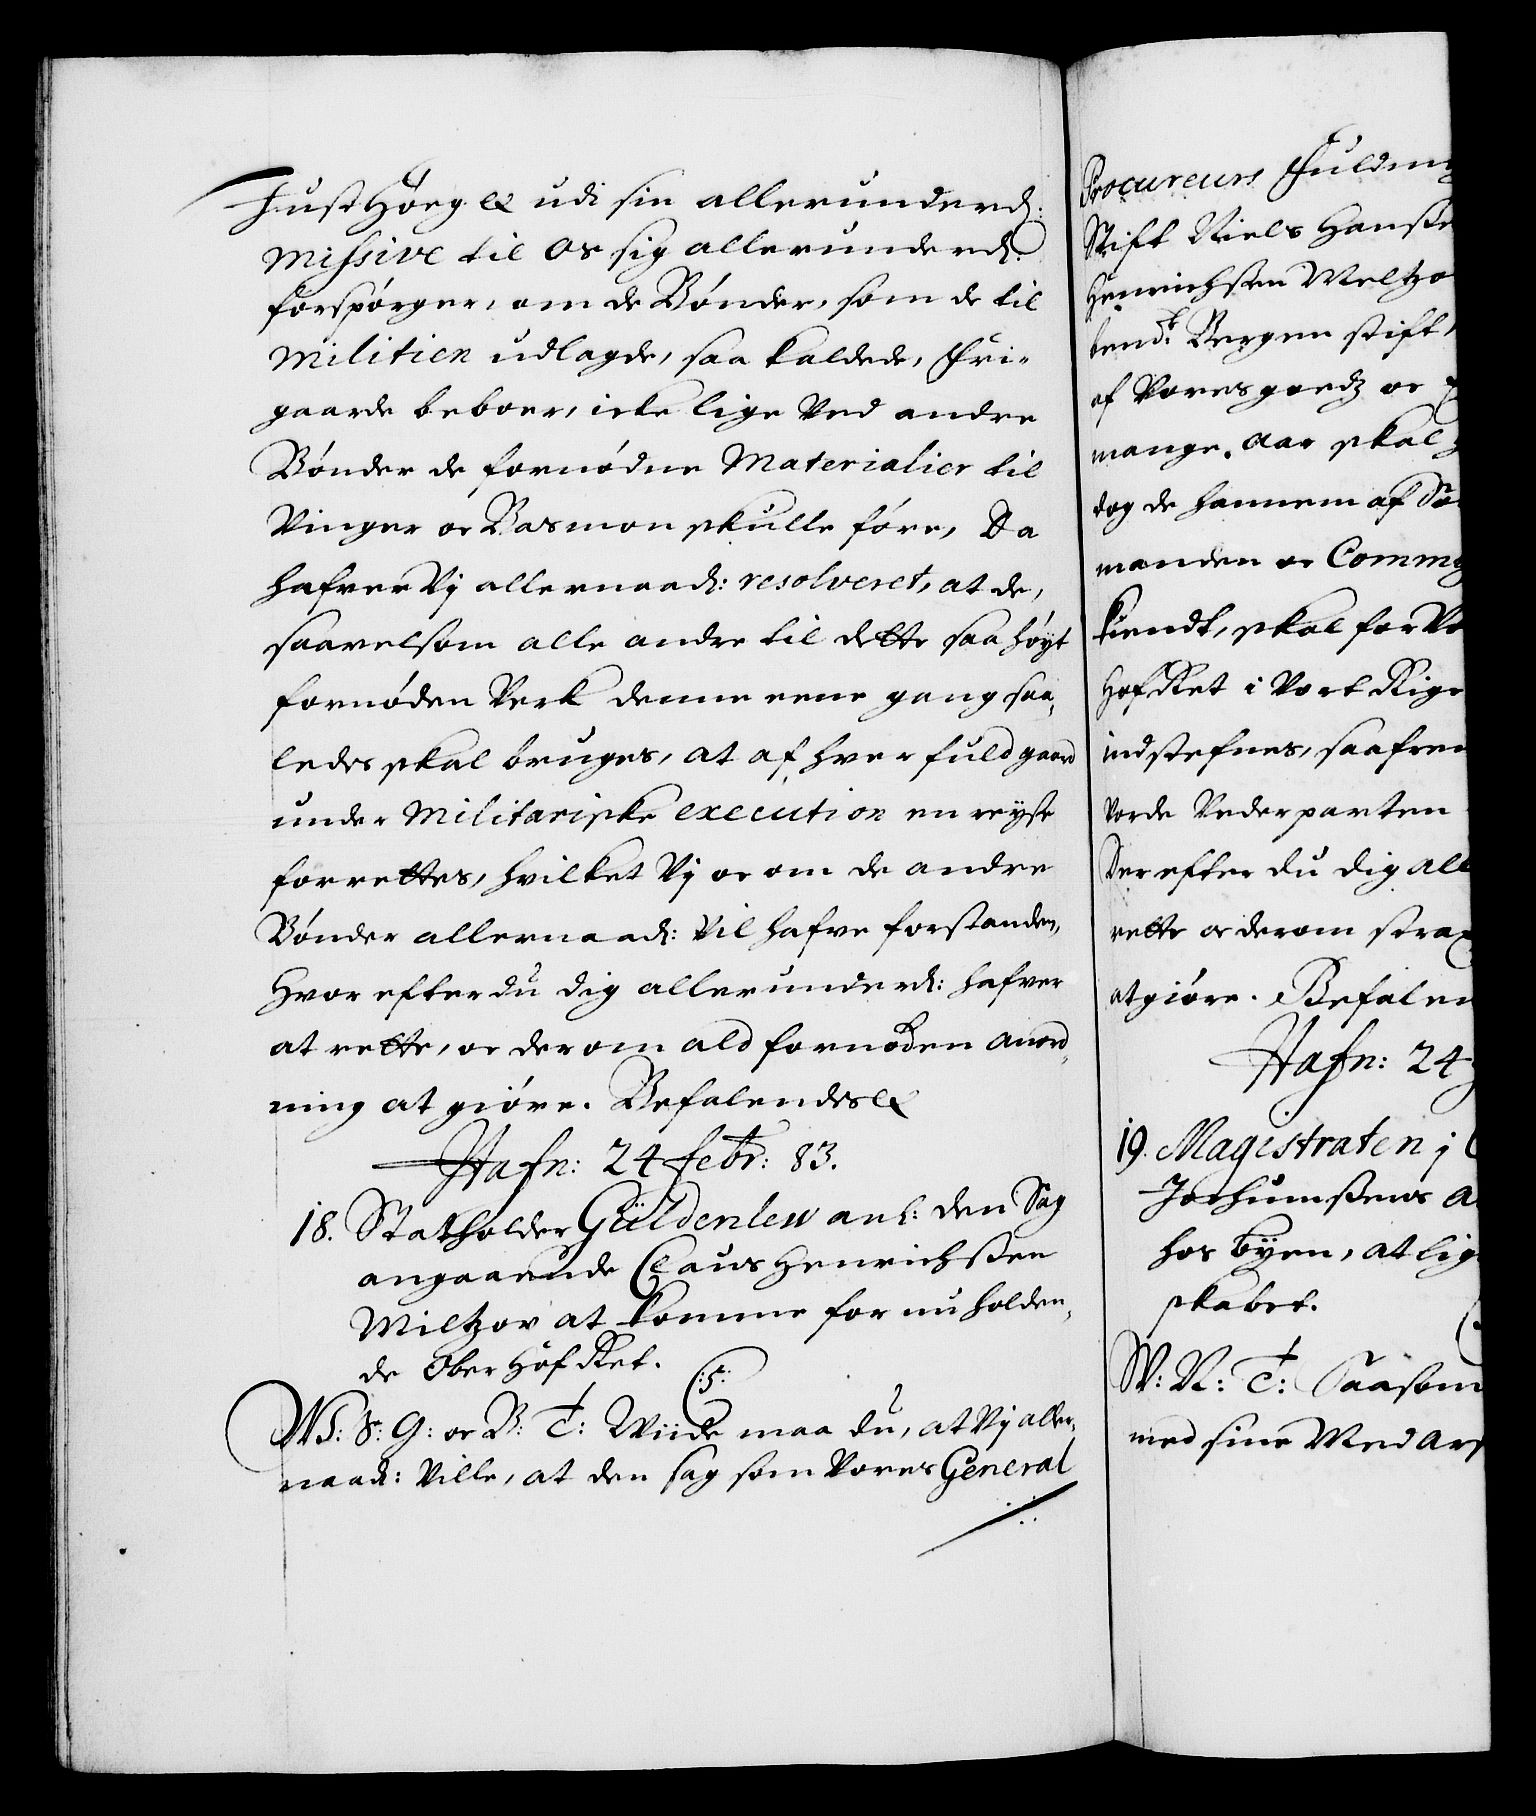 Just Höeg &c udi sin allerunderd:
Missive til Os sig allerunderd:
forspörger, om de Bönder, som de til
Militien udlagde, saa kaldede, Fri-
gaarde beboer, icke lige ved andre
Bönder de fornödne Materialier til
Vinger oc Basmon skulle före, Da
hafver Vj allernaad: resolveret, at de,
saavelsom alle andre til dette saa höyt
fornöden Verk denne eene gang saa,
ledes skal bruges, at af hver fuld gaard
under Militariske execution en reyse
forrettes, hvilket Vj oc om de andre
Bönder allernaad: vil hafve forstanden,
Hvorefter du dig allerunderd: hafver
at rette, oc derom ald fornöden anord,
ning at giöre. Befalendes &c
Hafn: 24 febr: 83.
18. Statholder Güldenlew anl: den Sag
angaaende Claus Henrichssen
Miltzov at komme for nu holden,
de Ober Hof Ret.
C:5:
W: S: G: oc B: T: Wiide maa du, at Vj aller,
naad: Ville, at den sag som Vores General
Procureurs Fuldm
Stift Niels Hansse
Henrichssen Meltzo
bend: Bergen stift,
af Vores goedz oc
mange Aar skal
dog de hannem af So
manden oc Commi
kiendt, skal for Vo
Hof Ret i Vort Rige
indstefnes, saafrem
vorde Vederparten
Derefter du dig all
rette oc derom strax
at giöre. Befalen
Hafn: 24
19. Magistraten j
Jochumssens A
hos byen, at lig
skabet.
W: N: T: Saasom
med sine Med Ar